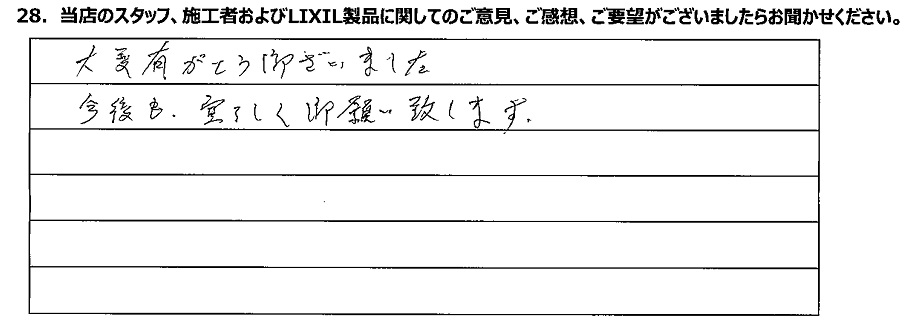 28. 当店のスタッフ、施工者およびLIXIL製品に関してのご意見、ご感想、ご要望がございましたらお聞かせください。
大変有がとう御ざいました
今後も、宜しく御願い致します.